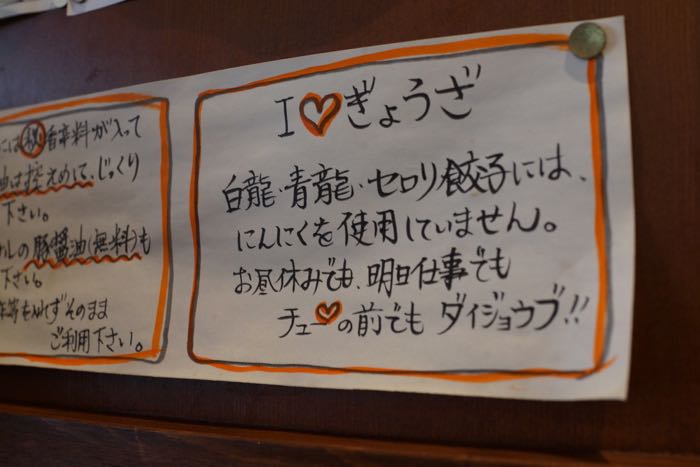 には㊙香辛料が入って
油は控えめて、じっくり
下さい。
ルの豚醤油(無料)も
下さい。
等も入れずそのまま
ご利用下さい。
I♡ぎょうざ
白龍・青龍・セロリ餃子には、
にんにくを使用していません。
お昼休みでも、明日仕事でも
チュー♡の前でも ダイジョウブ!!